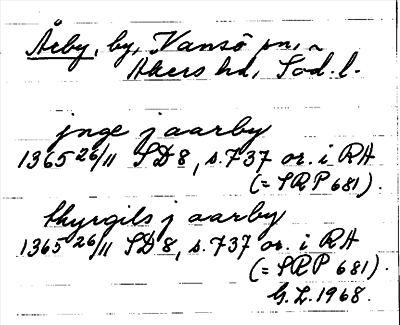 Årby, by, Vansö sn, ~
Åkers hd, Söd. l.
jnge j aarby
1365 26/11 SD 8, s. 737 or. i RA
(= SRP 681).
thyrgils j aarby
1365 26/11 SD 8, s. 737 or. i RA
(= SRP 681).
G. L. 1968.